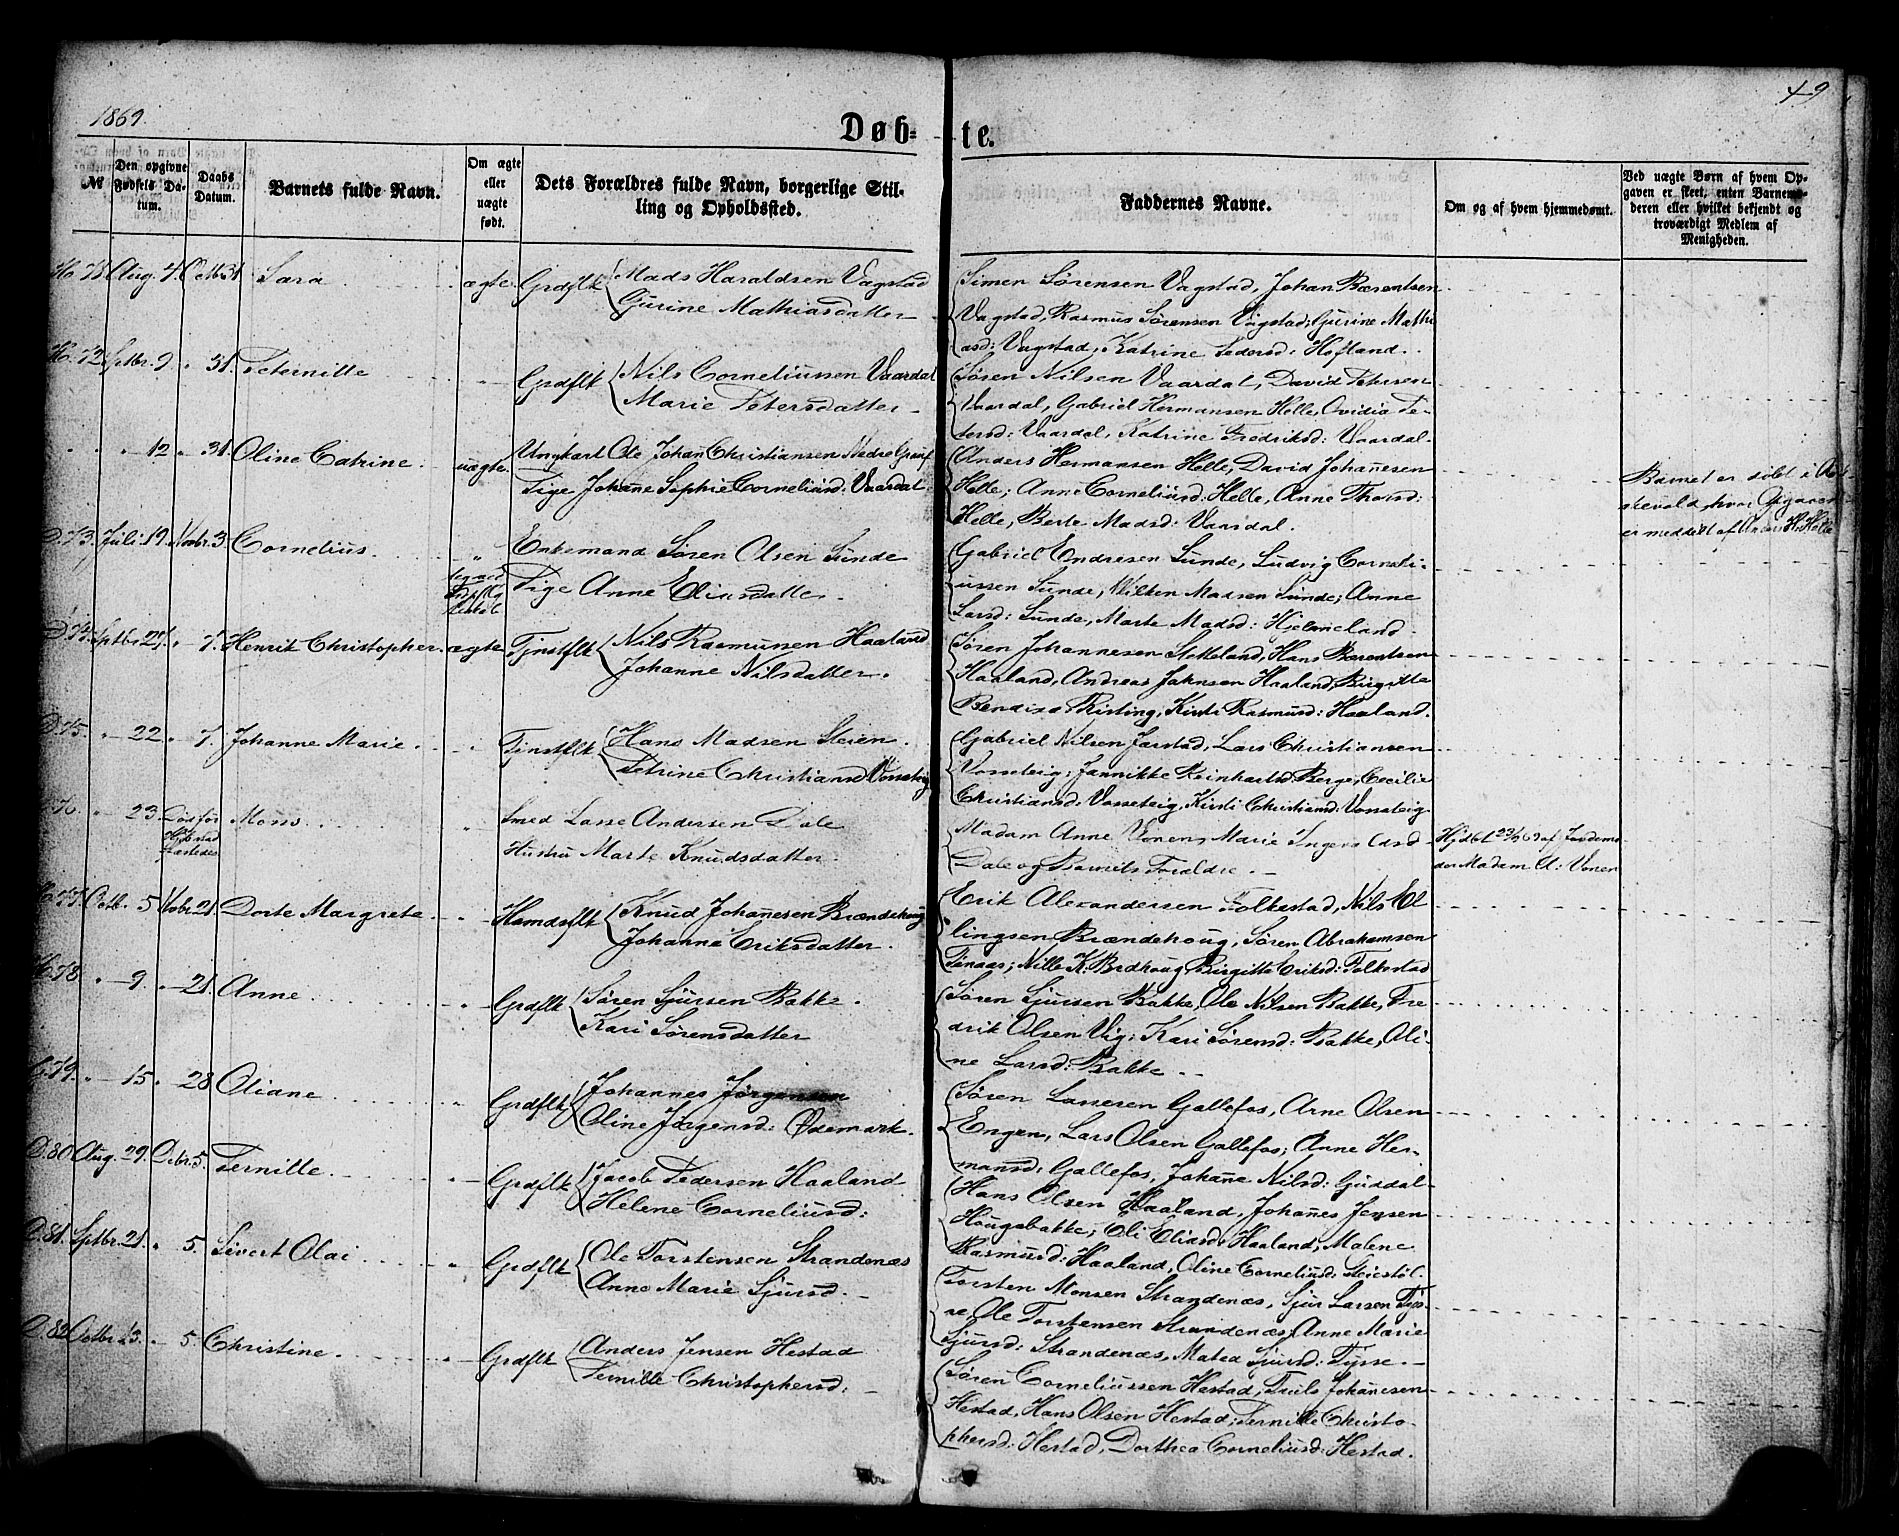 1869.
49
Døb-
te.
№
Den opgivne Fødsels Datum.
Daabs Datum.
Barnets fulde Navn.
Om ægte eller uægte født.
Dets Forældres fulde Navn, borgerlige Stilling og Opholdssted.
Faddernes Navne.
Om og af hvem hjemmedømt.
Ved uægte Børn af hvem Opgaven er skeet, enten Barnemoderen eller hvilket bekjendt og troværdigt Medlem af Menigheden.
Aug. 4. Octb. 31 Sara ægte Grdflk Mads Haraldsen Vagstad
Gurine Mathiasdatter
Simen Sørensen Vagstad, Johan Bærentsen
Vagstad, Rasmus Sørensen Vagstad; Gurine Mathi
asd: Vagstad, Katrine Pedersd: Hofland.
72 Sptbr. 9 " 31. Peternille " Grdflk Nils Corneliussen Vaardal
Marie Petersdatter
Søren Nilsen Vaardal, David Petersen
Vaardal, Gabriel Hermansen Helle, Ovidia Pe-
tersd: Vaardal, Katrine Fredriksd: Vaardal.
" " 12 " 31. Oline Catrine. uægte. Ungkarl Ole Johan Christiansen
Pige Johanne Sophie Corneliusd: Vaardal
Anders Hermansen Helle, David Johannesen
Helle; Anne Corneliusd: Helle, Anne Thorsd:
Helle, Berte Madsd: Vaardal.
Barnet er
hvor Opgaven
er meddelt af
D. 73. Juli 19. Novbr. 3. Cornelius. " Enkemand Søren Olsen Sunde
Pige Anne Eliasdatter.
Gabriel Endresen Sunde, Ludvig Corneli-
ussen Sunde, Wilken Madsen Sunde; Anne
Larsd: Sunde, Marte Madsd: Hjelmeland.
D. 74. Sptbr. 21. " 7. Henrik Christopher. ægte Tjnstflk Nils Rasmussen Haaland
Johanne Nilsdatter.
Søren Johannesen Stokeland, Hans Bærentsen
Haaland, Andreas Johnsen Haaland, Birgitte
Kisting, Kirsti Rasmusd: Haaland.
D. 75. " 22. " 7. Johanne Marie. " Tjnstflk Hans Madsen Steien.
Petrine Christiansd Vosseteig
Gabriel Nilsen Jarstad, Lars Christiansen
Vosseteig; Jannikke Reinhartsd: Berge, Cecilie
Christiansd: Vosseteig, Kirsti Christiansd: Vosseteig.
76 " 23. Mons. " Smed Lasse Andersen Dale
Hustru Marte Knudsdatter.
Madam Anne Vonen, Marie
Dale og Barnets Forældre.
Hjdbt 23/9 69 af Jordemo-
der Madam A: Vonen
77. Octb. 5 Novbr. 21. Dorte Margrete. " Hamdsflk Knud Johannesen Brændehoug
Johanne Eriksdatter.
Erik Alexandersen Folkestad, Nils El
lingsen Brændehoug, Søren Abrahamsen
Tenaas; Nille K. Brdhoug, Birgitte Eriksd: Folkestad
78 " 9 " 21. Anne " Grdflk Søren Sjursen Bakke.
Kari Sørensdatter
Søren Sjursen Bakke, Ole Nilsen Bakke, Fre
drik Olsen Vig; Kari Sørensd: Bakke, Oli-
ne Larsd: Bakke
79. " 15 " 28 Oliane " Grdflk Johannes Jørgensen
Oline Jørgensd: Ødemark.
Søren Lassesen Gallefos, Arne Olsen
Engen, Lars Olsen Gallefos; Anne Her-
mansd: Gallefos, Johanne Nilsd: Guddal
D. 80. Aug. 29. Dcbr. 5. Pernille. " Grdflk Jacob Pedersen Haaland
Helene Corneliusd:
Hans Olsen Haaland, Johannes Jensen
Hougsbakke; Eli Eliasd: Haaland, Malene
Rasmusd: Haaland, Oline Corneliusd: Steiestøl.
D. 81. Sptbr. 21. " 5. Sivert Olai " Grdflk Ole Torstensen Strandenæs
Anne Marie Sjursd.
Torsten Monsen Strandenæs, Sjur Larsen Tys-
se, Ole Torstensen Strandenæs; Anne Marie
Sjursd: Strandenæs, Matea Sjursd: Tysse.
D. 82 Octbr. 13. " 5. Christine. " Grdflk Anders Jensen Hestad
Pernille Christophersd:
Søren Corneliussen Hestad, Truls Johannesen
Hestad, Hans Olsen Hestad; Pernille Christo-
phersd: Hestad, Dorthea Corneliusd: Hestad.